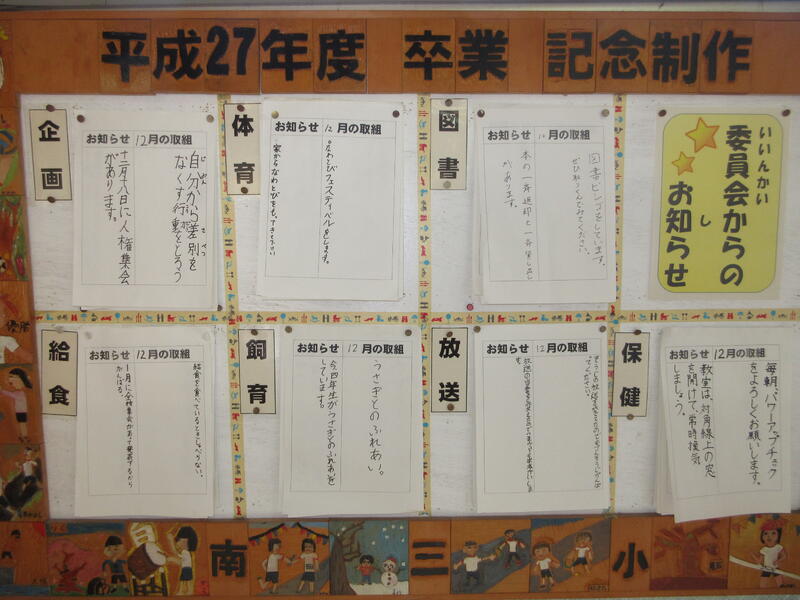 平成27年度 卒業 記念制作
企画
お知らせ 12月の取組
自分から差別を
なくす行動をとろう
十二月十八日に人権集会
があります。
体育
お知らせ 12月の取組
なわとびフェスティバルをします。
家からなわとびをもってきて下さい
図書
お知らせ 12月の取組
図書ビンゴをしています。
ぜひ取りくんでみてください。
本の一斉返却と一斉貸し出し
があります。
いいんかい
委員会からの
し
お知らせ
給食
お知らせ 12月の取組
給食を食べているときしゃべらない。
1月に全校集会があって発表するから
がんばる。
飼育
お知らせ 12月の取組
うさぎとのふれあい。
今、四年生がうさぎとのふれあいを
しています。
放送
お知らせ 12月の取組
保健
お知らせ 12月の取組
毎朝、パワーアップチェック
をよろしくお願いします。
教室は、対角線上の窓
を開けて、常時換気
しましょう。
南三小